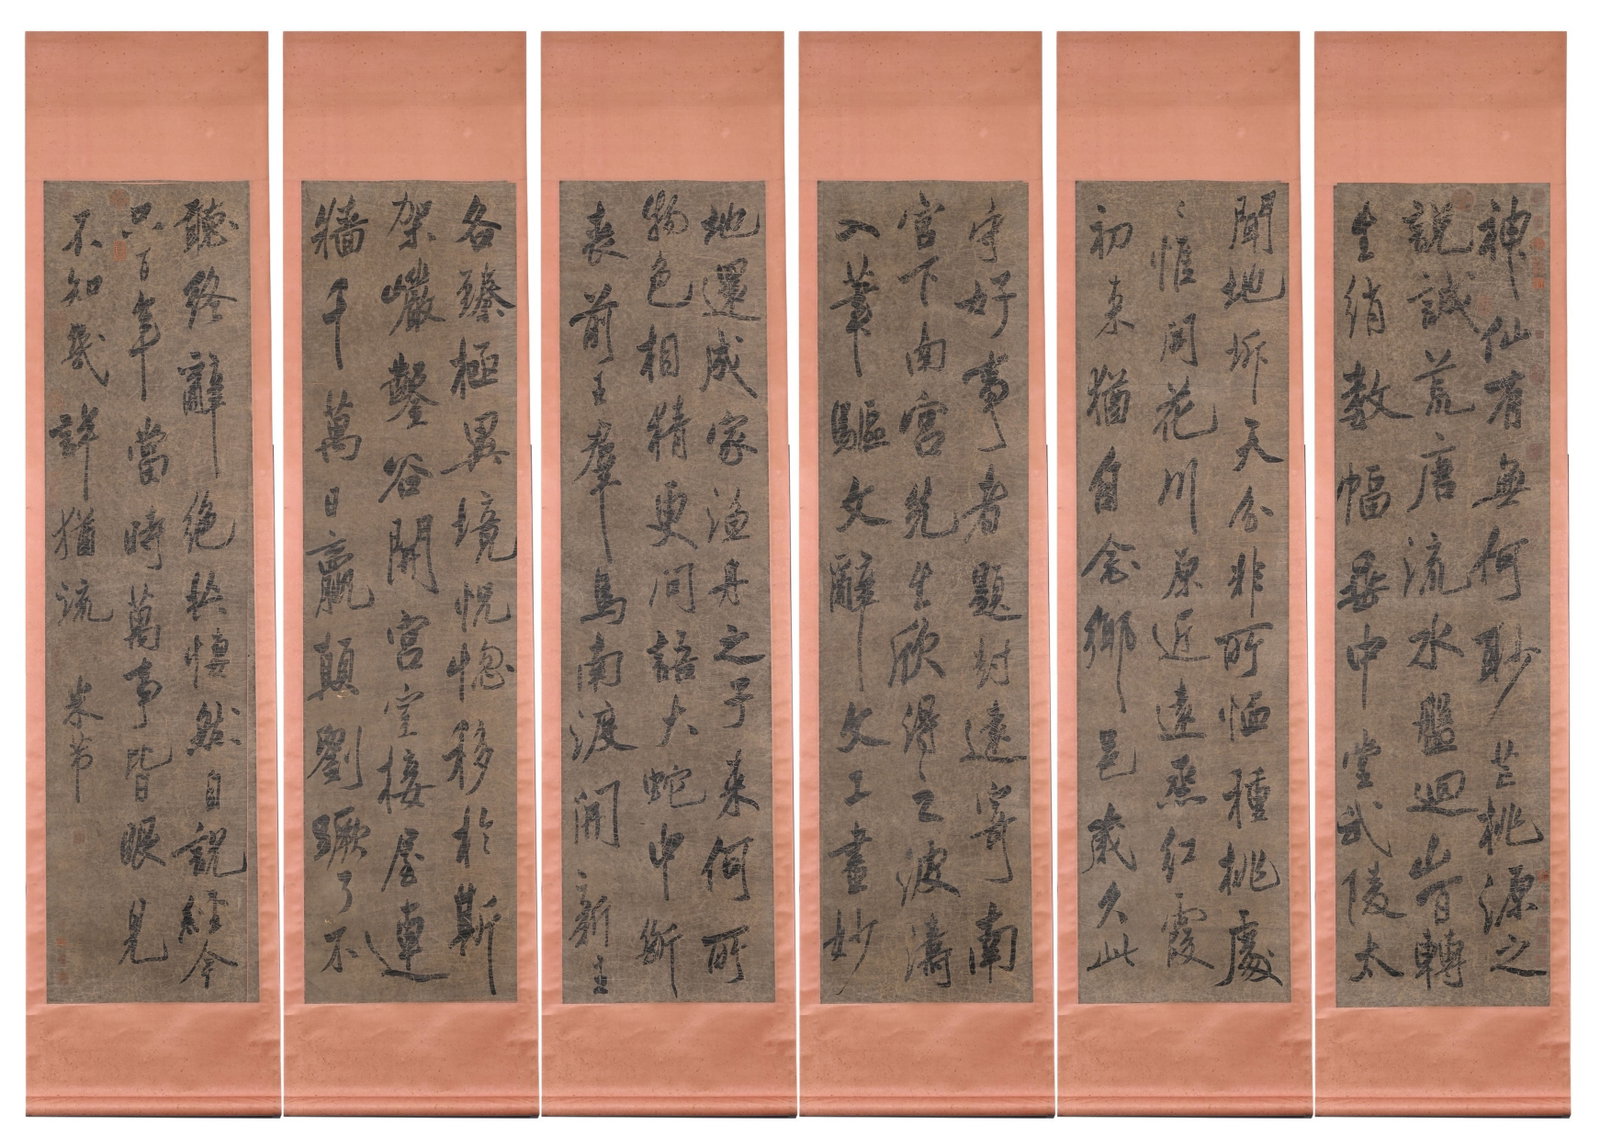 神仙有無何眇芒桃源之
說誠荒唐流水盤迴山百轉
生綃數幅垂中堂武陵太
聞地坼天分非所恤種桃處
〻惟開花川原近遠烝紅霞
初來猶自念鄉邑歲久此
守好事者題封遠寄南
宮下南宮先生欣得之波濤
入筆驅文辭文工畫妙
地還成家漁舟之子來何所
物色相猜更問語大蛇中斷
喪前王羣馬南渡開新主
各臻極異境恍惚移於斯
架巖鑿谷開宮室接屋連
牆千萬日嬴顛劉蹶了不
聽終辭絕共悽然自說經今
六百年當時萬事皆眼見
不知幾許猶流 米芾